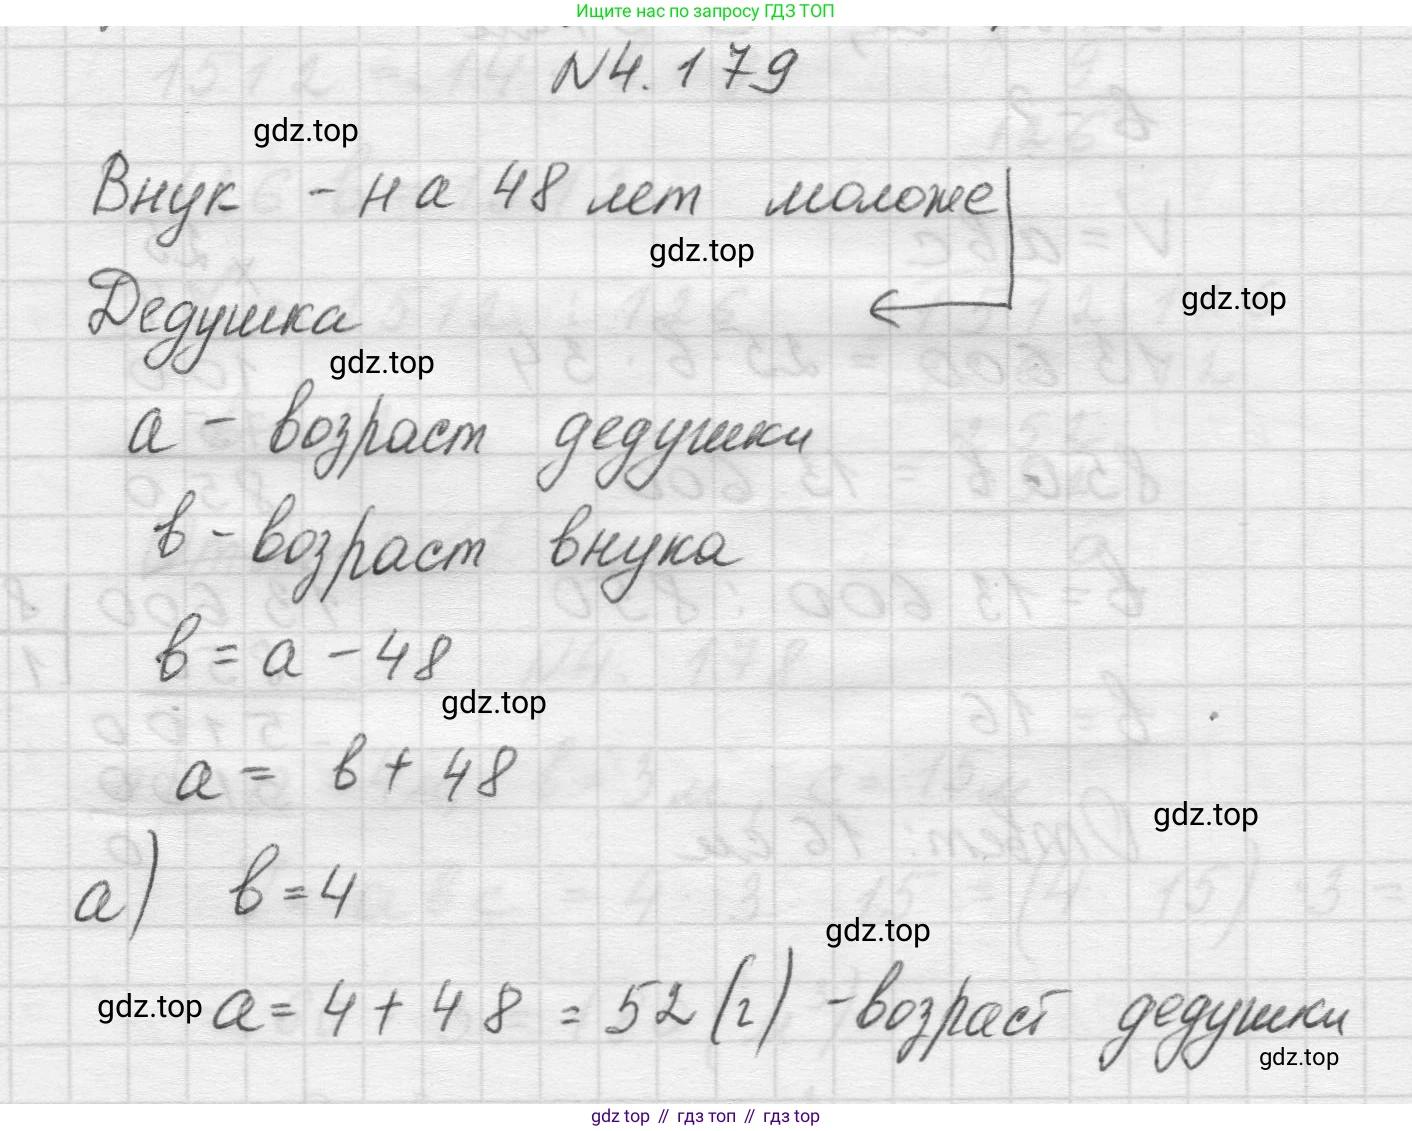 Ищите нас по запросу ГДЗ ТОП
N4.179
gdz.top
Внук - на 48 лет моложе
gdz.top
gdz.top
Дедушка
gdz.top
а - возраст дедушки
в - возраст внука
в = а - 48
gdz.top
а = в + 48
gdz.top
а) в = 4
gdz.top
gdz.top а = 4 + 48 = 52 (г) - возраст дедушки
gdz.top
gdz top // гдз топ // гдз top